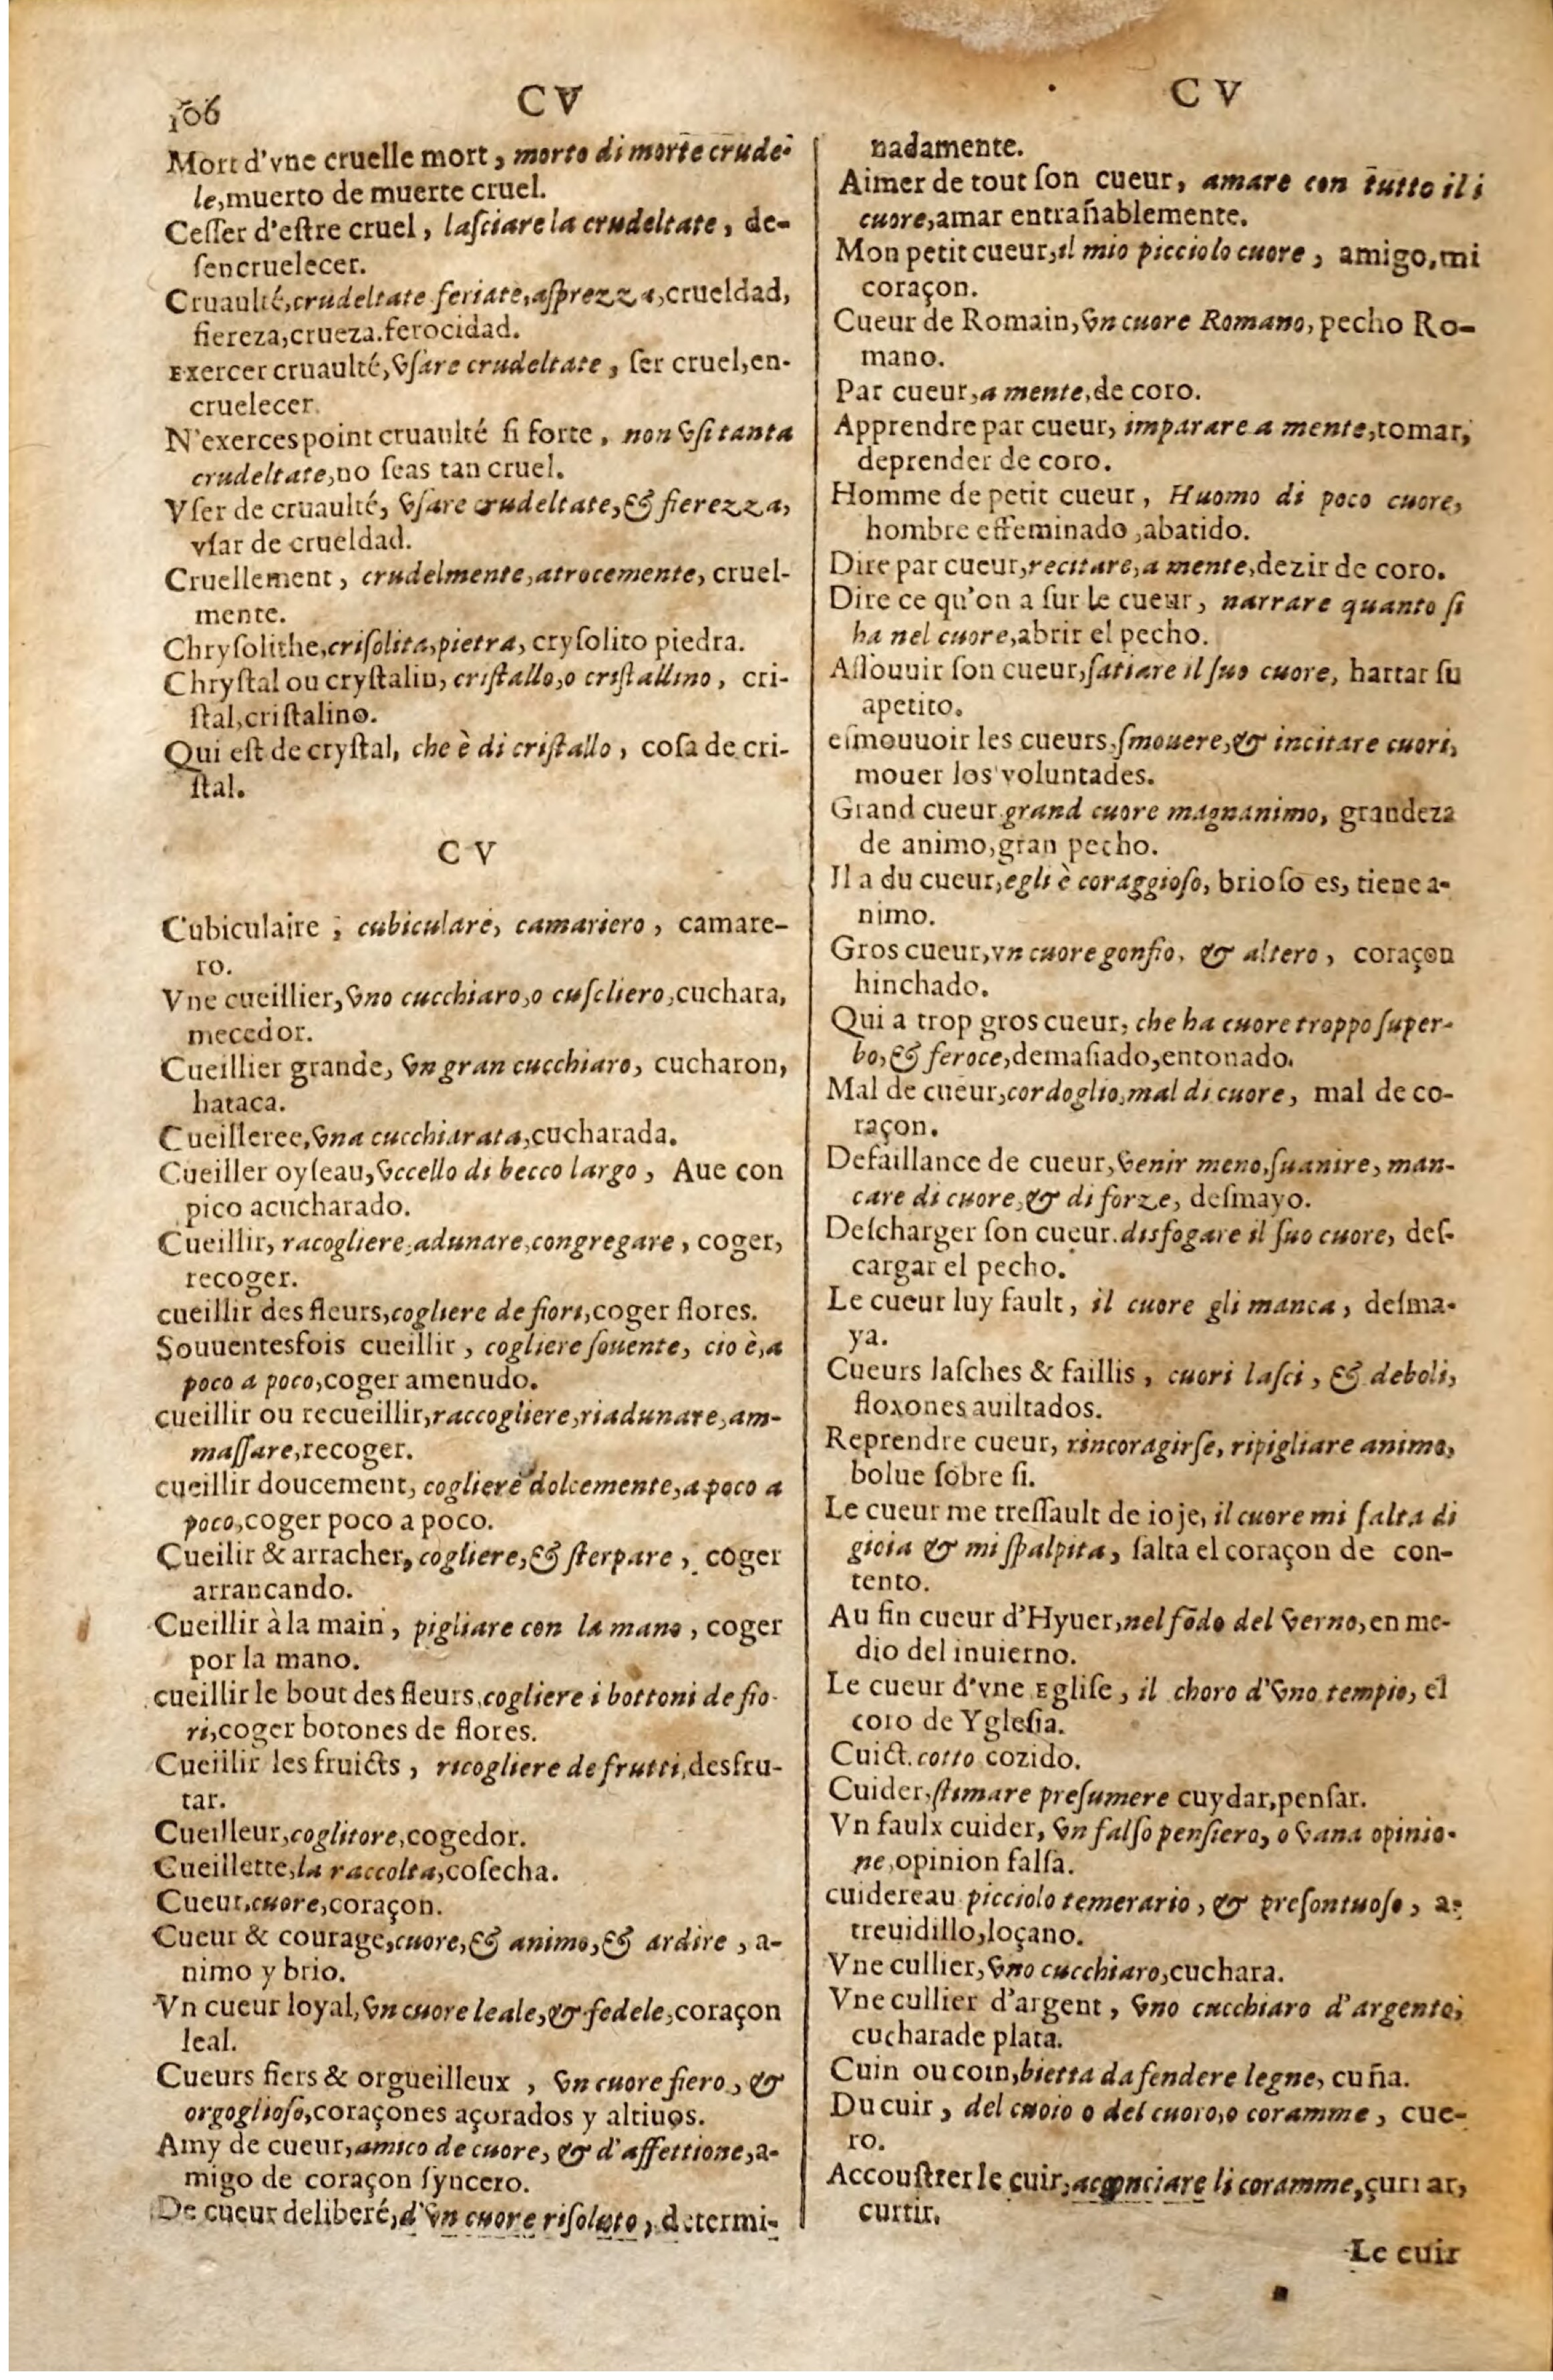 106
CV
CV
Mort d'vne cruelle mort, morto di morte crude-
le, muerto de muerte cruel.
Cesser d'estre cruel, lasciare la crudeltate, de-
sencruelecer.
Cruaulté, crudeltate feriate, asprezza, crueldad,
fiereza, crueza. ferocidad.
Exercer cruaulté, vsare crudeltate, ser cruel, en-
cruelecer.
N'exerces point cruaulté si forte, non vsi tanta
crudeltate, no seas tan cruel.
Vser de cruaulté, vsare crudeltate, & fierezza,
vsar de crueldad.
Cruellement, crudelmente, atrocemente, cruel-
mente.
Chrysolithe, crisolita, pietra, crysolito piedra.
Chrystal ou crystalin, cristallo, o cristallino, cri-
stal, cristalino.
Qui est de crystal, che è di cristallo, cosa de cri-
stal.
CV
Cubiculaire, cubiculare, camariero, camare-
ro.
Vne cueillier, vno cucchiaro, o cuscliero, cuchara,
mecedor.
Cueillier grande, vn gran cucchiaro, cucharon,
hataca.
Cueilleree, vna cucchiarata, cucharada.
Cueiller oyseau, vccello di becco largo, Aue con
pico acucharado.
Cueillir, racogliere, adunare, congregare, coger,
recoger.
cueillir des fleurs, cogliere de fiori, coger flores.
Souuentesfois cueillir, cogliere souente, cio è, a
poco a poco, coger amenudo.
cueillir ou recueillir, raccogliere, riadunare, am-
massare, recoger.
cueillir doucement, cogliere dolcemente, a poco a
poco, coger poco a poco.
Cueilir & arracher, cogliere, & sterpare, coger
arrancando.
Cueillir à la main, pigliare con la mano, coger
por la mano.
cueillir le bout des fleurs, cogliere i bottoni de fio-
ri, coger botones de flores.
Cueillir les fruicts, ricogliere de frutti, desfru-
tar.
Cueilleur, coglitore, cogedor.
Cueillette, la raccolta, cosecha.
Cueur, cuore, coraçon.
Cueur & courage, cuore, & animo, & ardire, a-
nimo y brio.
Vn cueur loyal, vn cuore leale, & fedele, coraçon
leal.
Cueurs fiers & orgueilleux, vn cuore fiero, &
orgoglioso, coraçones açorados y altiuos.
Amy de cueur, amico de cuore, & d'affettione, a-
migo de coraçon syncero.
De cueur deliberé, d'vn cuore risoluto, determi-
nadamente.
Aimer de tout son cueur, amare con tutto il i
cuore, amar entrañablemente.
Mon petit cueur, il mio picciolo cuore, amigo, mi
coraçon.
Cueur de Romain, vn cuore Romano, pecho Ro-
mano.
Par cueur, a mente, de coro.
Apprendre par cueur, imparare a mente, tomar,
deprender de coro.
Homme de petit cueur, Huomo di poco cuore,
hombre effeminado, abatido.
Dire par cueur, recitare, a mente, dezir de coro.
Dire ce qu'on a sur le cueur, narrare quanto si
ha nel cuore, abrir el pecho.
Assouuir son cueur, satiare il suo cuore, hartar su
apetito.
esmouuoir les cueurs, smouere, & incitare cuori,
mouer los voluntades.
Grand cueur. grand cuore magnanimo, grandeza
de animo, gran pecho.
Il a du cueur, egli è coraggioso, brioso es, tiene a-
nimo.
Gros cueur, vn cuore gonfio, & altero, coraçon
hinchado.
Qui a trop gros cueur, che ha cuore troppo super-
bo, & feroce, demasiado, entonado.
Mal de cueur, cordoglio, mal di cuore, mal de co-
raçon.
Defaillance de cueur, venir meno, suanire, man-
care di cuore, & di forze, desmayo.
Descharger son cueur. disfogare il suo cuore, des-
cargar el pecho.
Le cueur luy fault, il cuore gli manca, desma-
ya.
Cueurs lasches & faillis, cuori lasci, & deboli,
floxones auiltados.
Reprendre cueur, rincoragirse, ripigliare animo,
bolue sobre si.
Le cueur me tressault de ioje, il cuore mi salta di
gioia & mi spalpita, salta el coraçon de con-
tento.
Au fin cueur d'Hyuer, nel fōdo del verno, en me-
dio del inuierno.
Le cueur d'vne Eglise, il choro d'vno tempio, el
coro de Yglesia.
Cuict. cotto cozido.
Cuider, stimare presumere cuydar, pensar.
Vn faulx cuider, vn falso pensiero, o vana opinio-
ne, opinion falsa.
cuidereau picciolo temerario, & presontuoso, a-
treuidillo, loçano.
Vne cullier, vno cucchiaro, cuchara.
Vne cullier d'argent, vno cucchiaro d'argento,
cucharade plata.
Cuin ou coin, bietta da fendere legne, cuña.
Du cuir, del cuoio o del cuoro, o coramme, cue-
ro.
Accoustrer le cuir, acconciare li coramme, çurrar,
curtir.
Le cuir